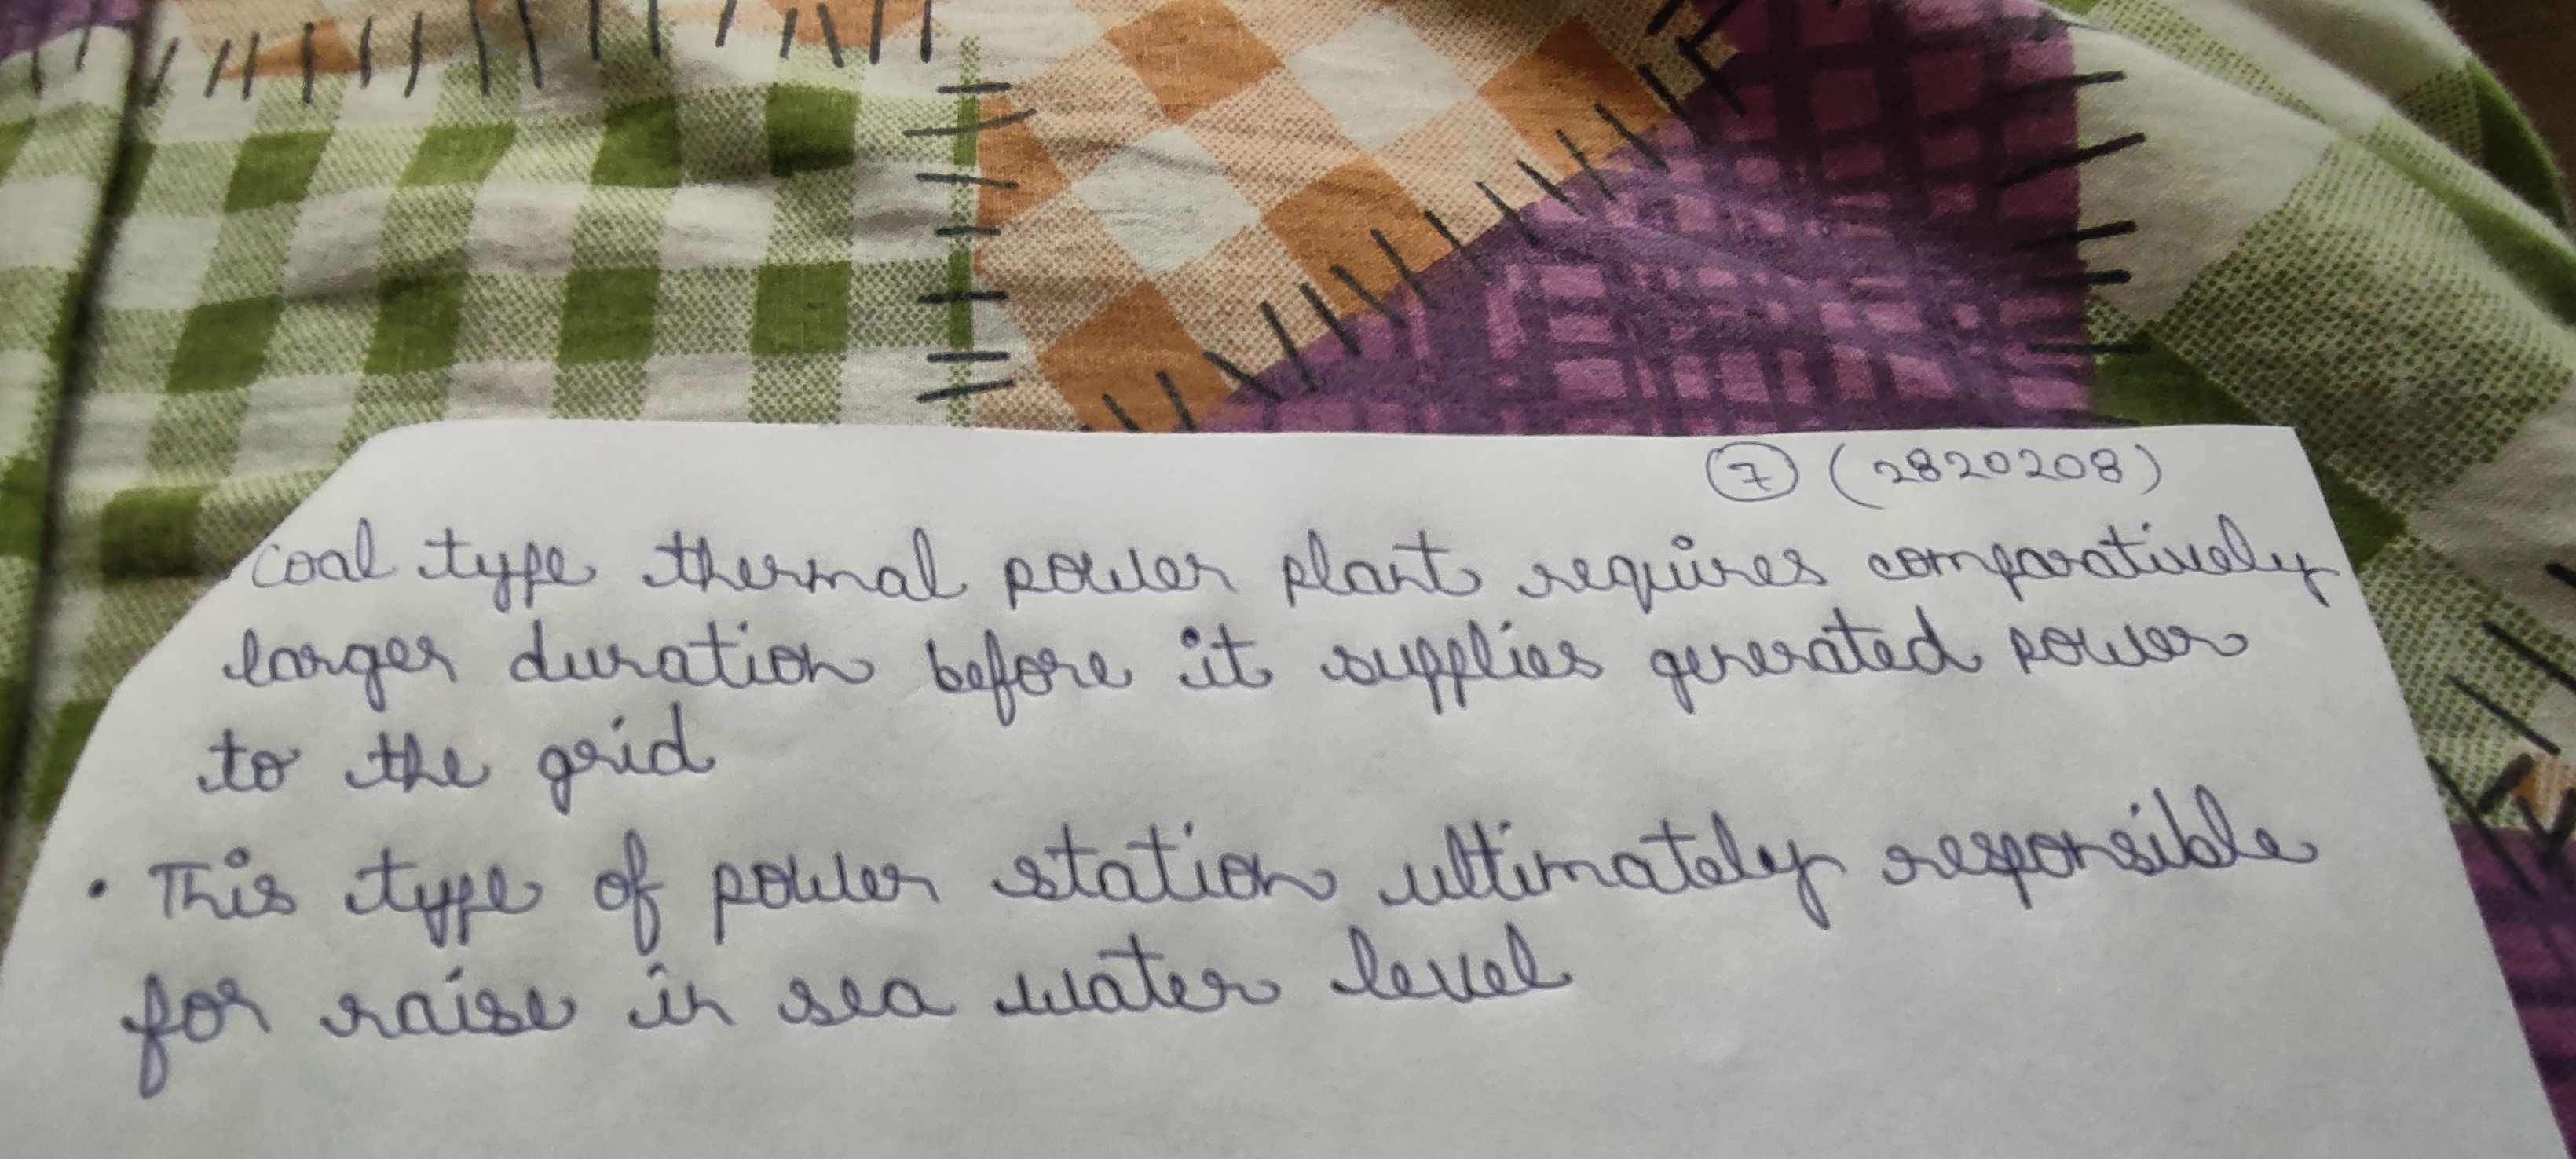 7 (2820208)
Coal type thermal power plant requires comparatively
larger duration before it supplies generated power
to the grid
• This type of power station ultimately responsible
for raise in sea water level